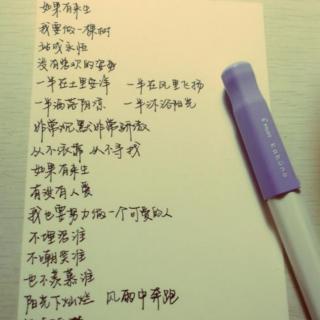 如果有来生
我要做一棵树
站成永恒
没有悲欢的姿势
一半在土里安详 一半在风里飞扬
一半洒落阴凉 一半沐浴阳光
非常沉默非常骄傲
从不依靠 从不寻找
如果有来生
有没有人爱
我也要努力做一个可爱的人
不埋怨谁
不嘲笑谁
也不羡慕谁
阳光下灿烂 风雨中奔跑
PILOT kakuno